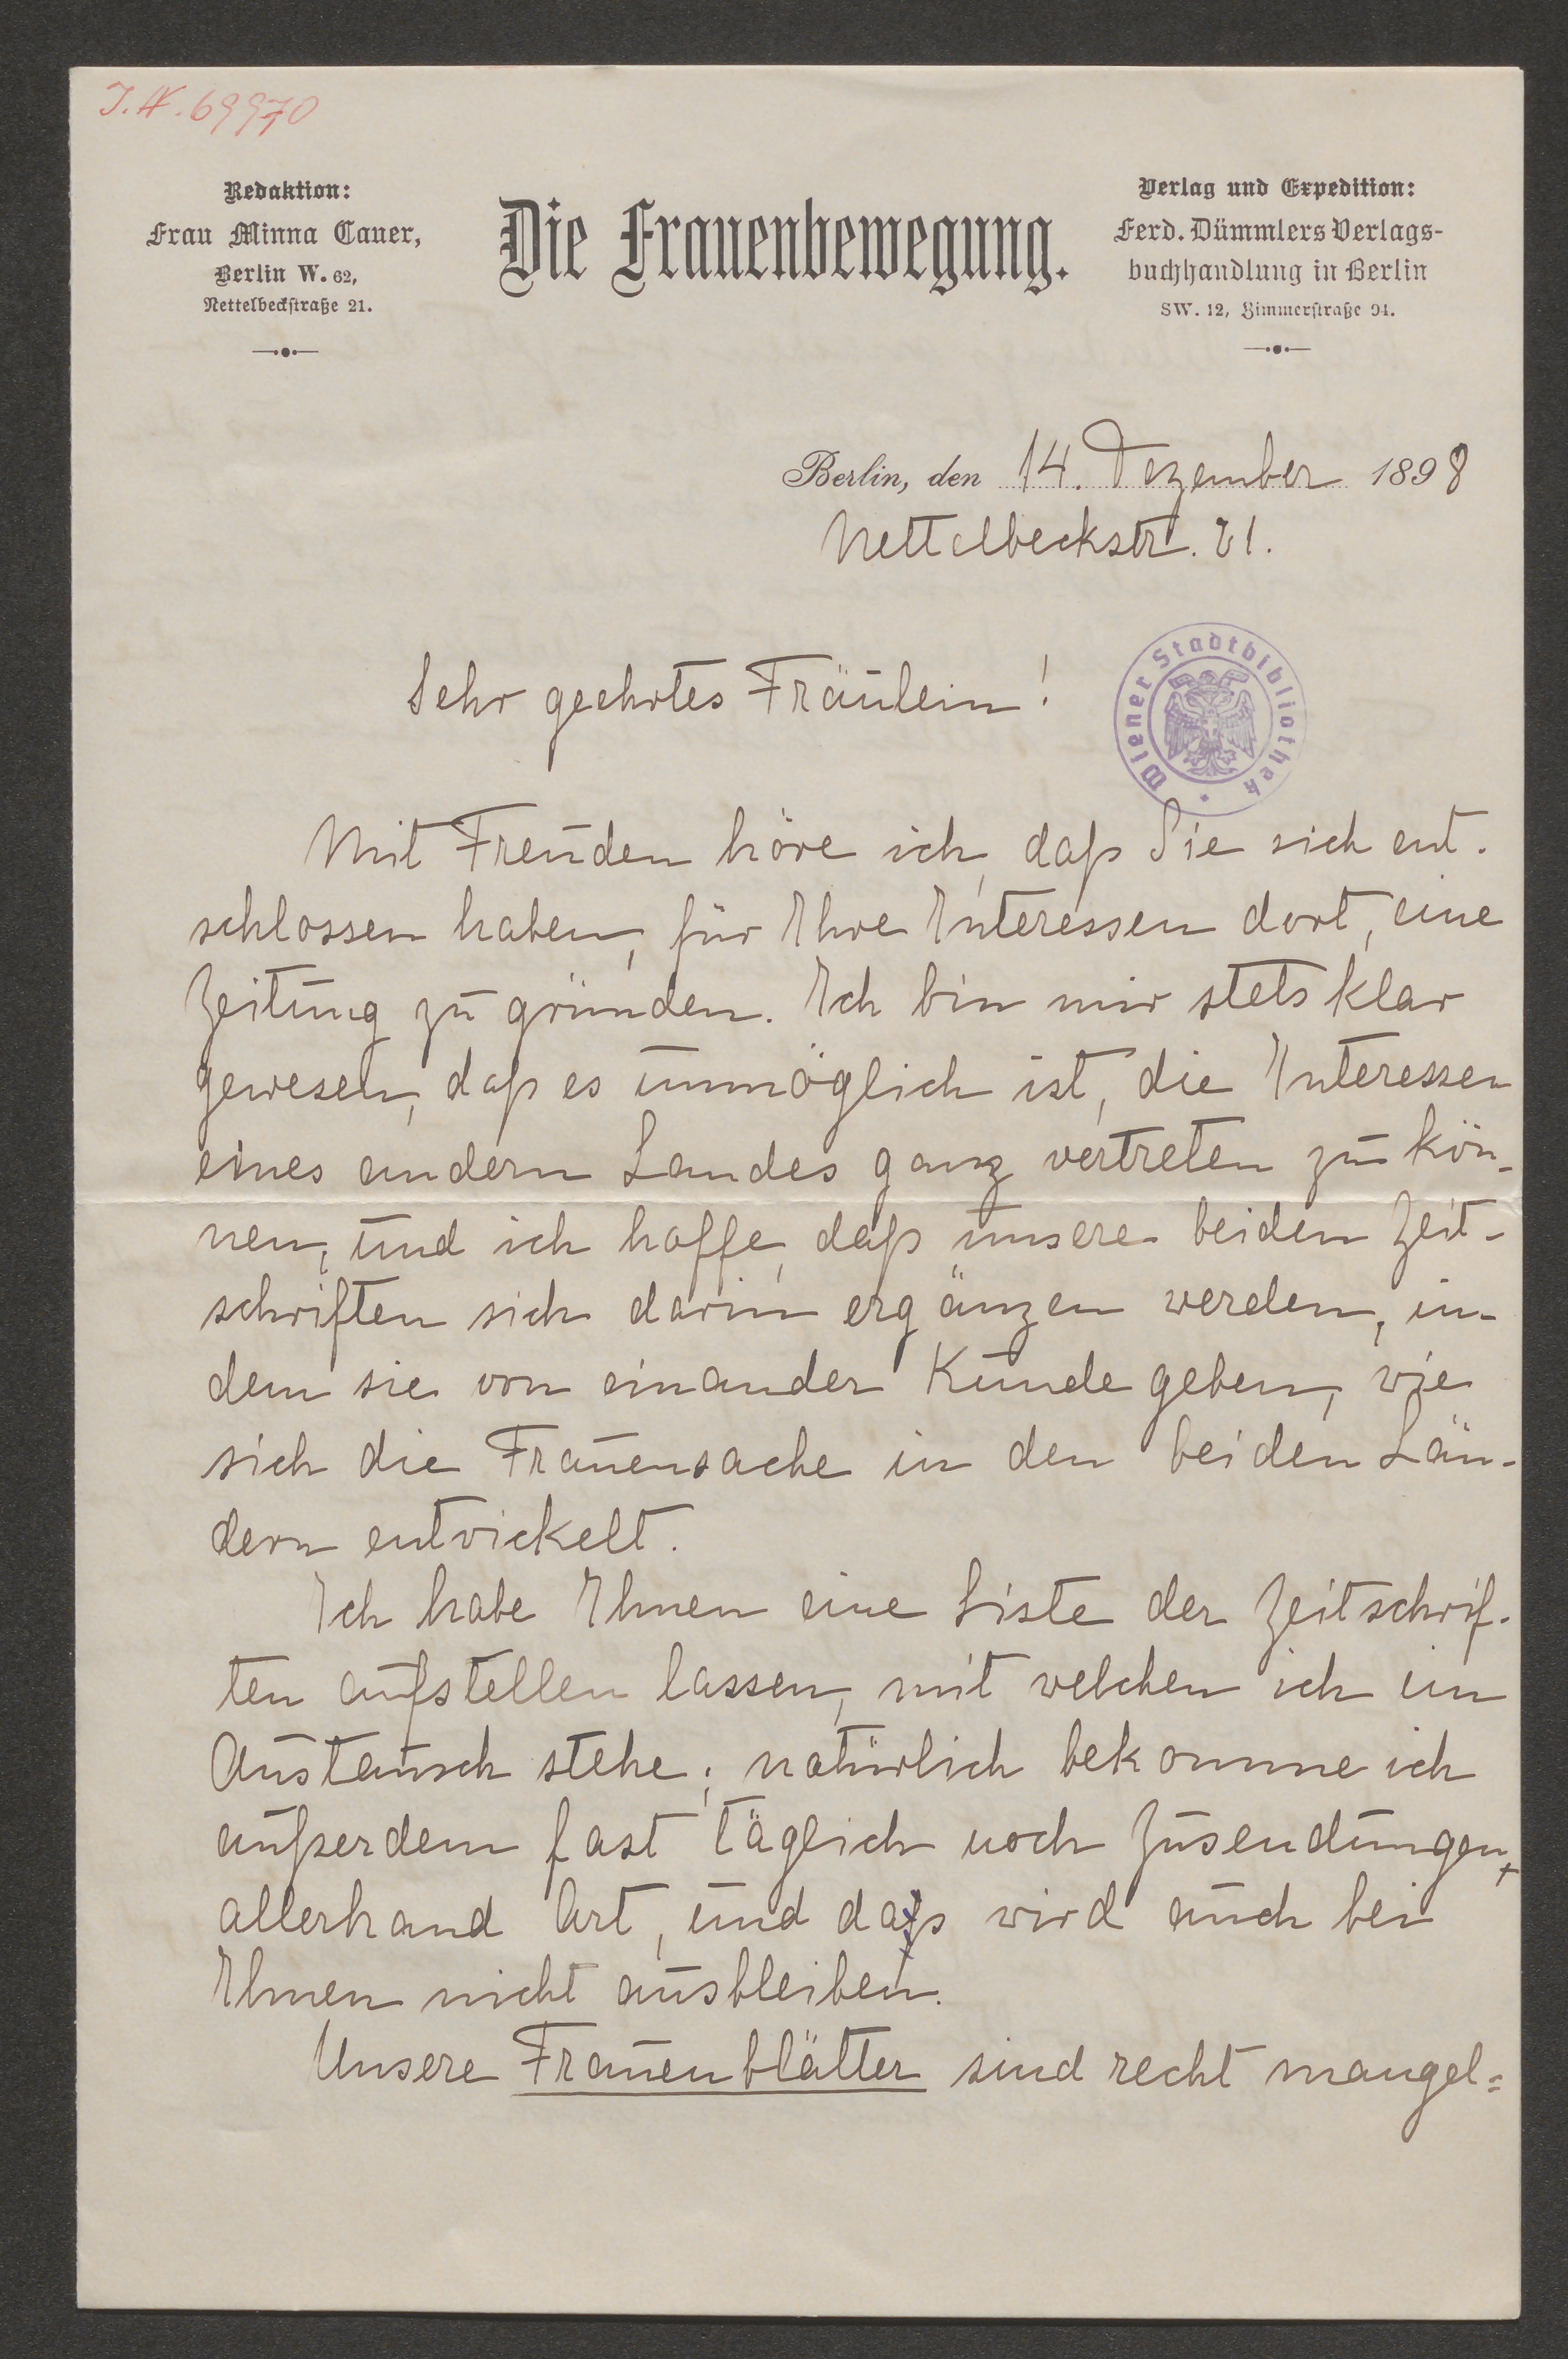 J.N. 69970
Redaktion:
Frau Minna Cauer,
Berlin W. 62,
Nettelbeckstraße 21.
Die Frauenbewegung.
Verlag und Expedition:
Ferd. Dümmlers Verlags-
buchhandlung in Berlin
SW. 12, Zimmerstraße 94.
Berlin, den 14. Dezember 1898
Nettelbeckstr. 21.
Wiener Stadtbibliothek
Sehr geehrtes Fräulein!
Mit Freuden höre ich, daß Sie sich ent-
schlossen haben, für Ihre Interessen dort, eine
Zeitung zu gründen. Ich bin mir stets klar
gewesen, daß es unmöglich ist, die Interessen
eines andern Landes ganz vertreten zu kön-
nen, und ich hoffe, daß unsere beiden Zeit-
schriften sich darin ergänzen werden, in-
dem sie von einander Kunde geben, wie
sich die Frauensache in den beiden Län-
dern entwickelt.
Ich habe Ihnen eine Liste der Zeitschrif-
ten aufstellen lassen, mit welchen ich im
Austausch stehe; natürlich bekomme ich
außerdem fast täglich noch Zusendungen,
allerhand Art, und daß wird auch bei
Ihnen nicht ausbleiben.
Unsere Frauenblätter sind recht mangel=